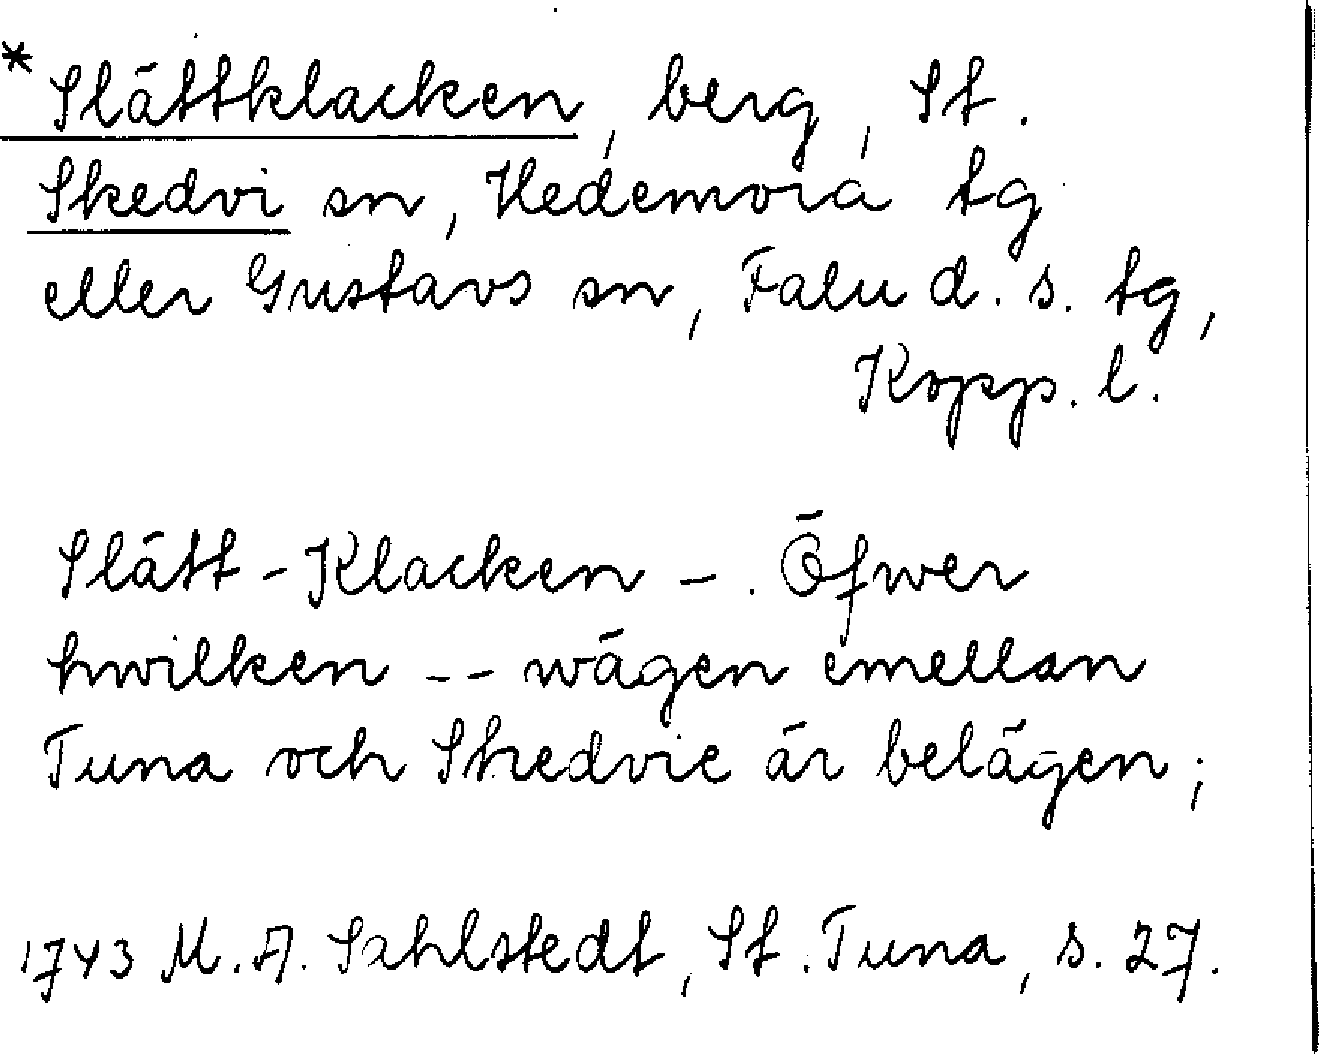 *Slättklacken, berg, St.
Skedvi sn, Hedemora tg
eller Gustavs sn, Falu d. s. tg,
Kopp. l.
Slätt-Klacken -. Öfwer
hwilken -- wägen emellan
Tuna och Skedvie är belägen;
1743 M. A. Sahlstedt, St. Tuna, s. 27.